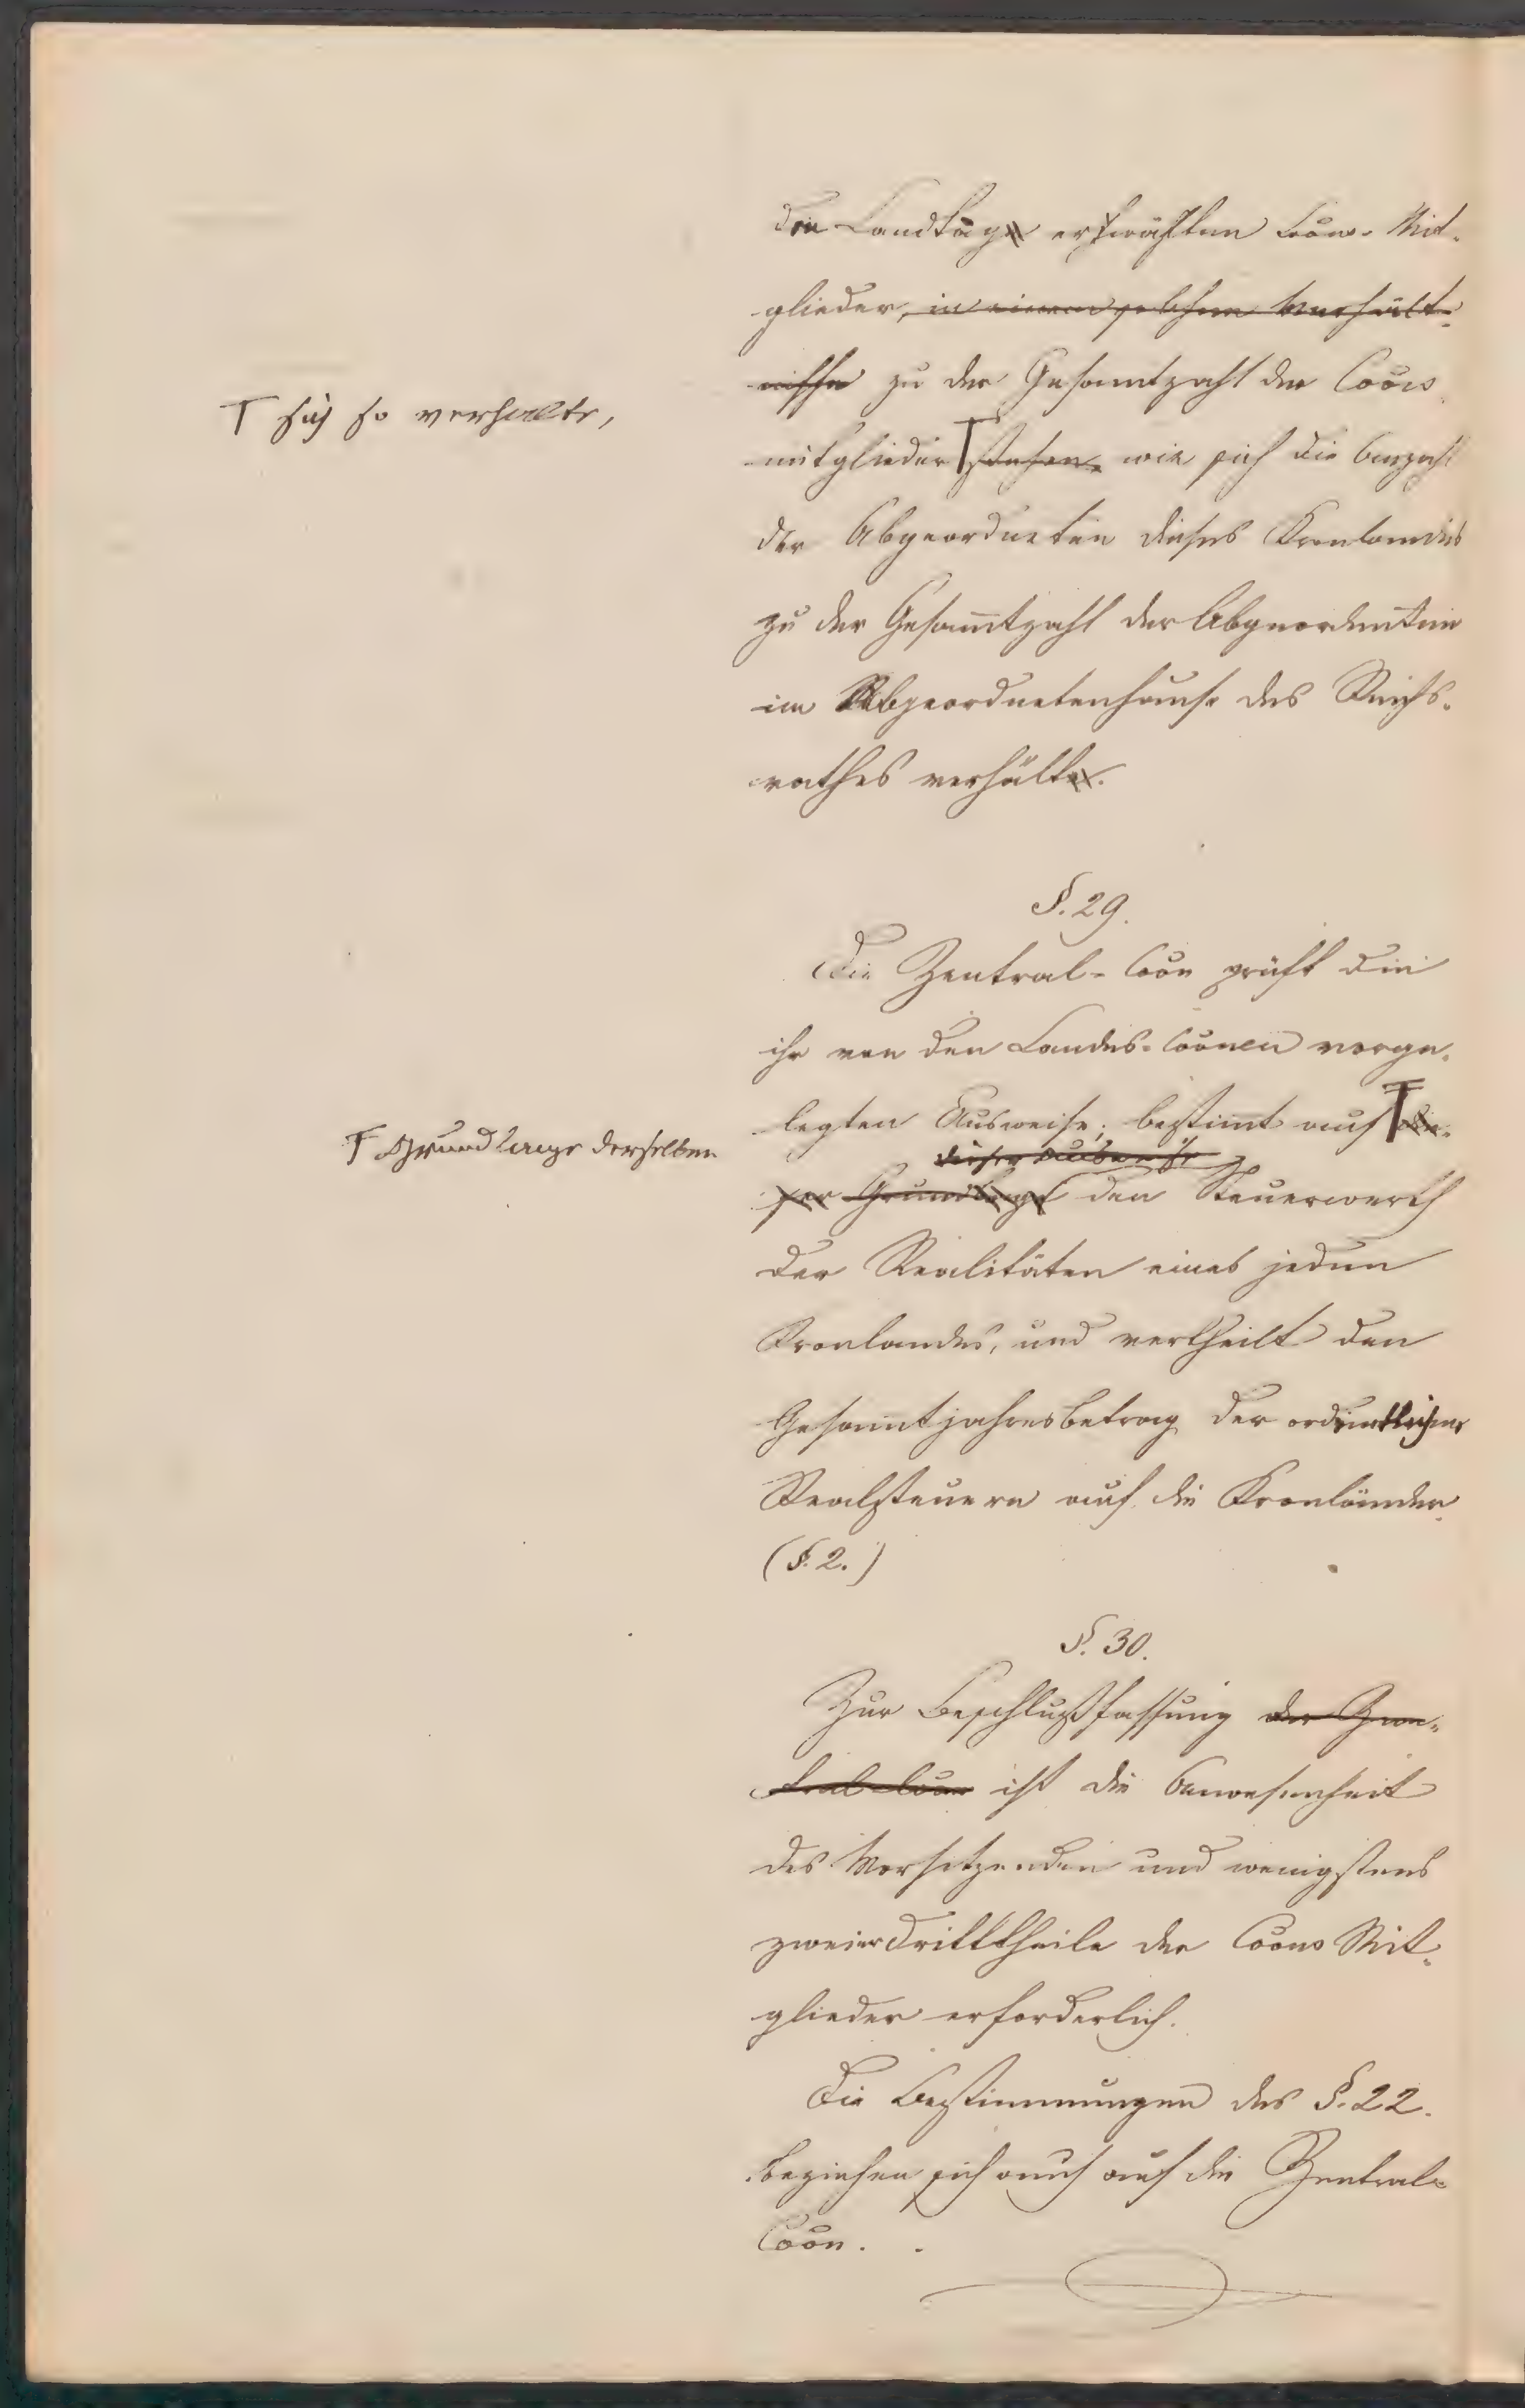 den Landtage erwählten Coõns-Mit-
glieder, in einem solchen Verhält-
nisse zu der Gesammtzahl der Coõns
mitglieder stehen, wie sich die Anzahl
der Abgeordneten dieses Kronlandes
zu der Gesam̅tzahl der Abgeordneten
im Abgeordnetenhause des Reichs-
rathes verhält.
sich so verhalte,
§. 29.
Die Zentral-Coõn prüft die
ihr von den Landes-Coõnen vorge-
legten Ausweise, bestim̅t auf die-
dieser Ausweise
ser Grundlage den Steuerwerth
der Realitäten eines jeden
Kronlandes, und vertheilt den
Gesam̅tjahresbetrag der ordentlichen
Realsteuern auf die Kronländer
(§. 2.)
Grundlage derselben
§. 30.
Zur Beschlußfassung der Zen-
tral-Coõn ist die Anwesenheit
des Vorsitzenden und wenigstens
zweier Dritttheile der Coõns Mit-
glieder erforderlich.
Die Bestimmungen des §. 22.
beziehen sich auch auf die Zentral-
Coõn.